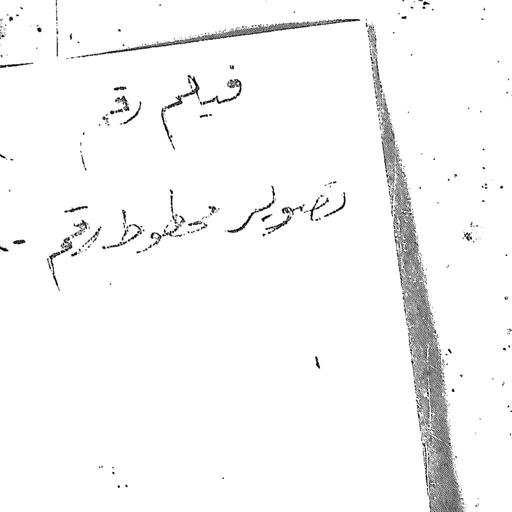 فيلم رقم
تصوير مخطوط رقم -